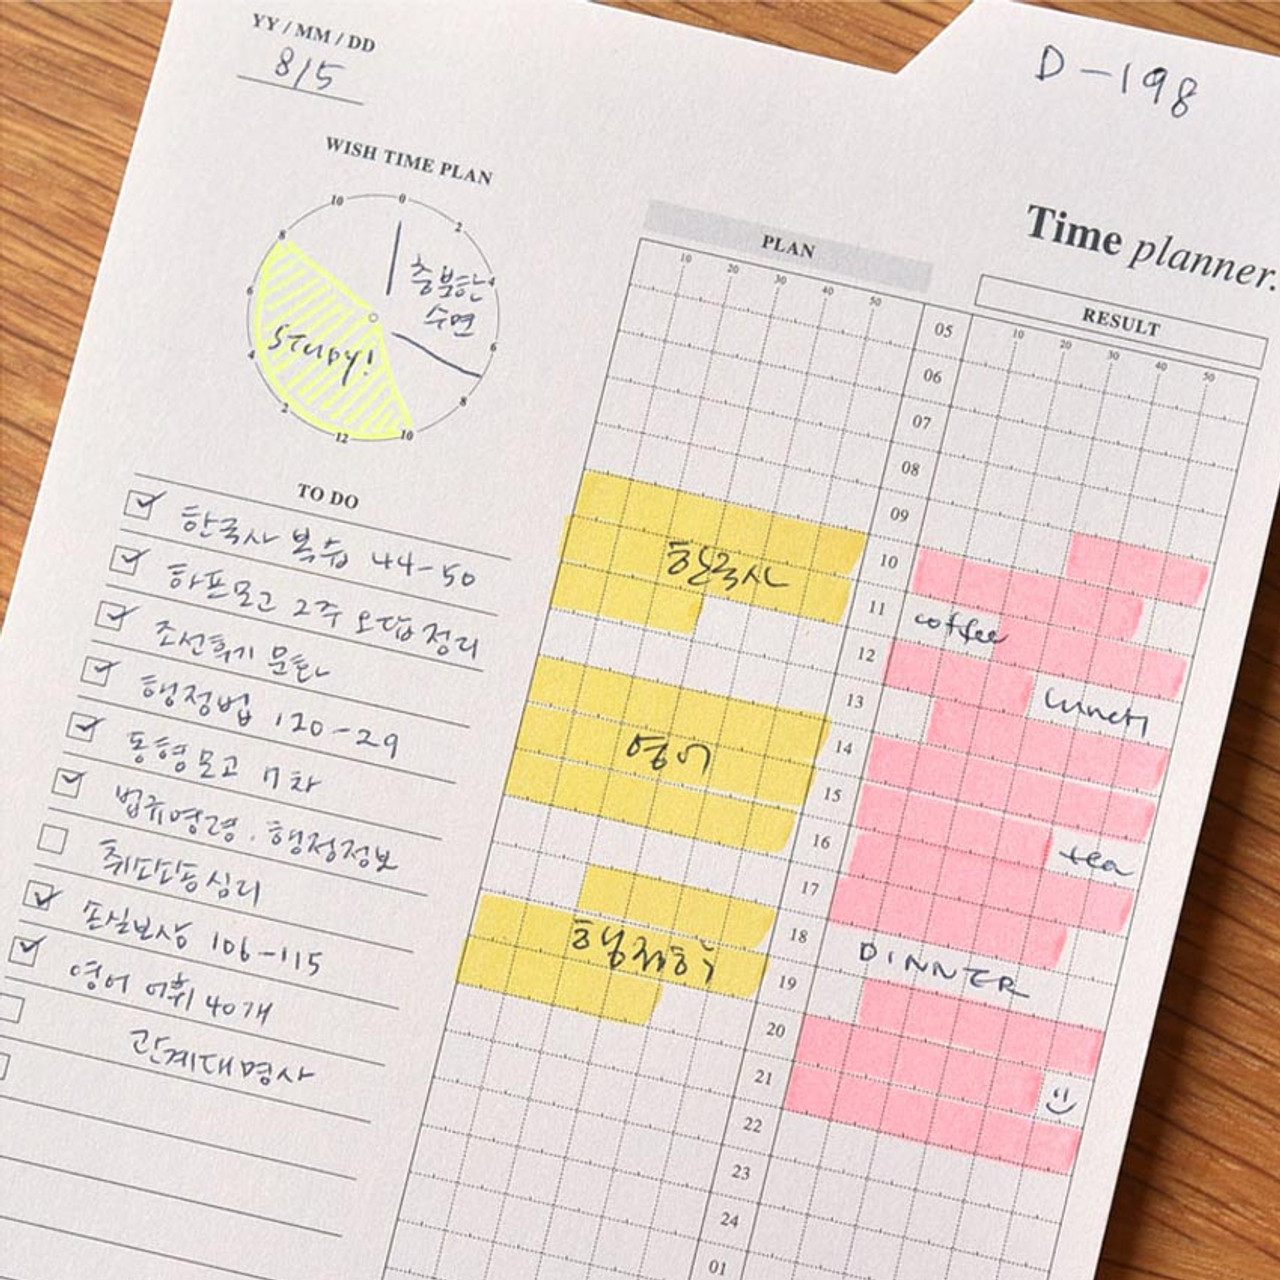 YY / MM / DD
8/5
D-198
WISH TIME PLAN
0
2
4
6
8
10
12
2
4
6
8
10
충분한
수면
STUDY!
Time planner.
PLAN
10 20 30 40 50
RESULT
10 20 30 40 50
TO DO
한국사 복습 44-50
하프모고 2주 오답정리
조선후기 문화
행정법 120-29
동형모고 7차
법규명령. 행정정보
심리
손실보상 106-115
영어 어휘 40개
관계대명사
05
06
07
08
09
10
11
12
13
14
15
16
17
18
19
20
21
22
23
24
01
한국사
영어
행정학
coffee
lunch
tea
DINNER